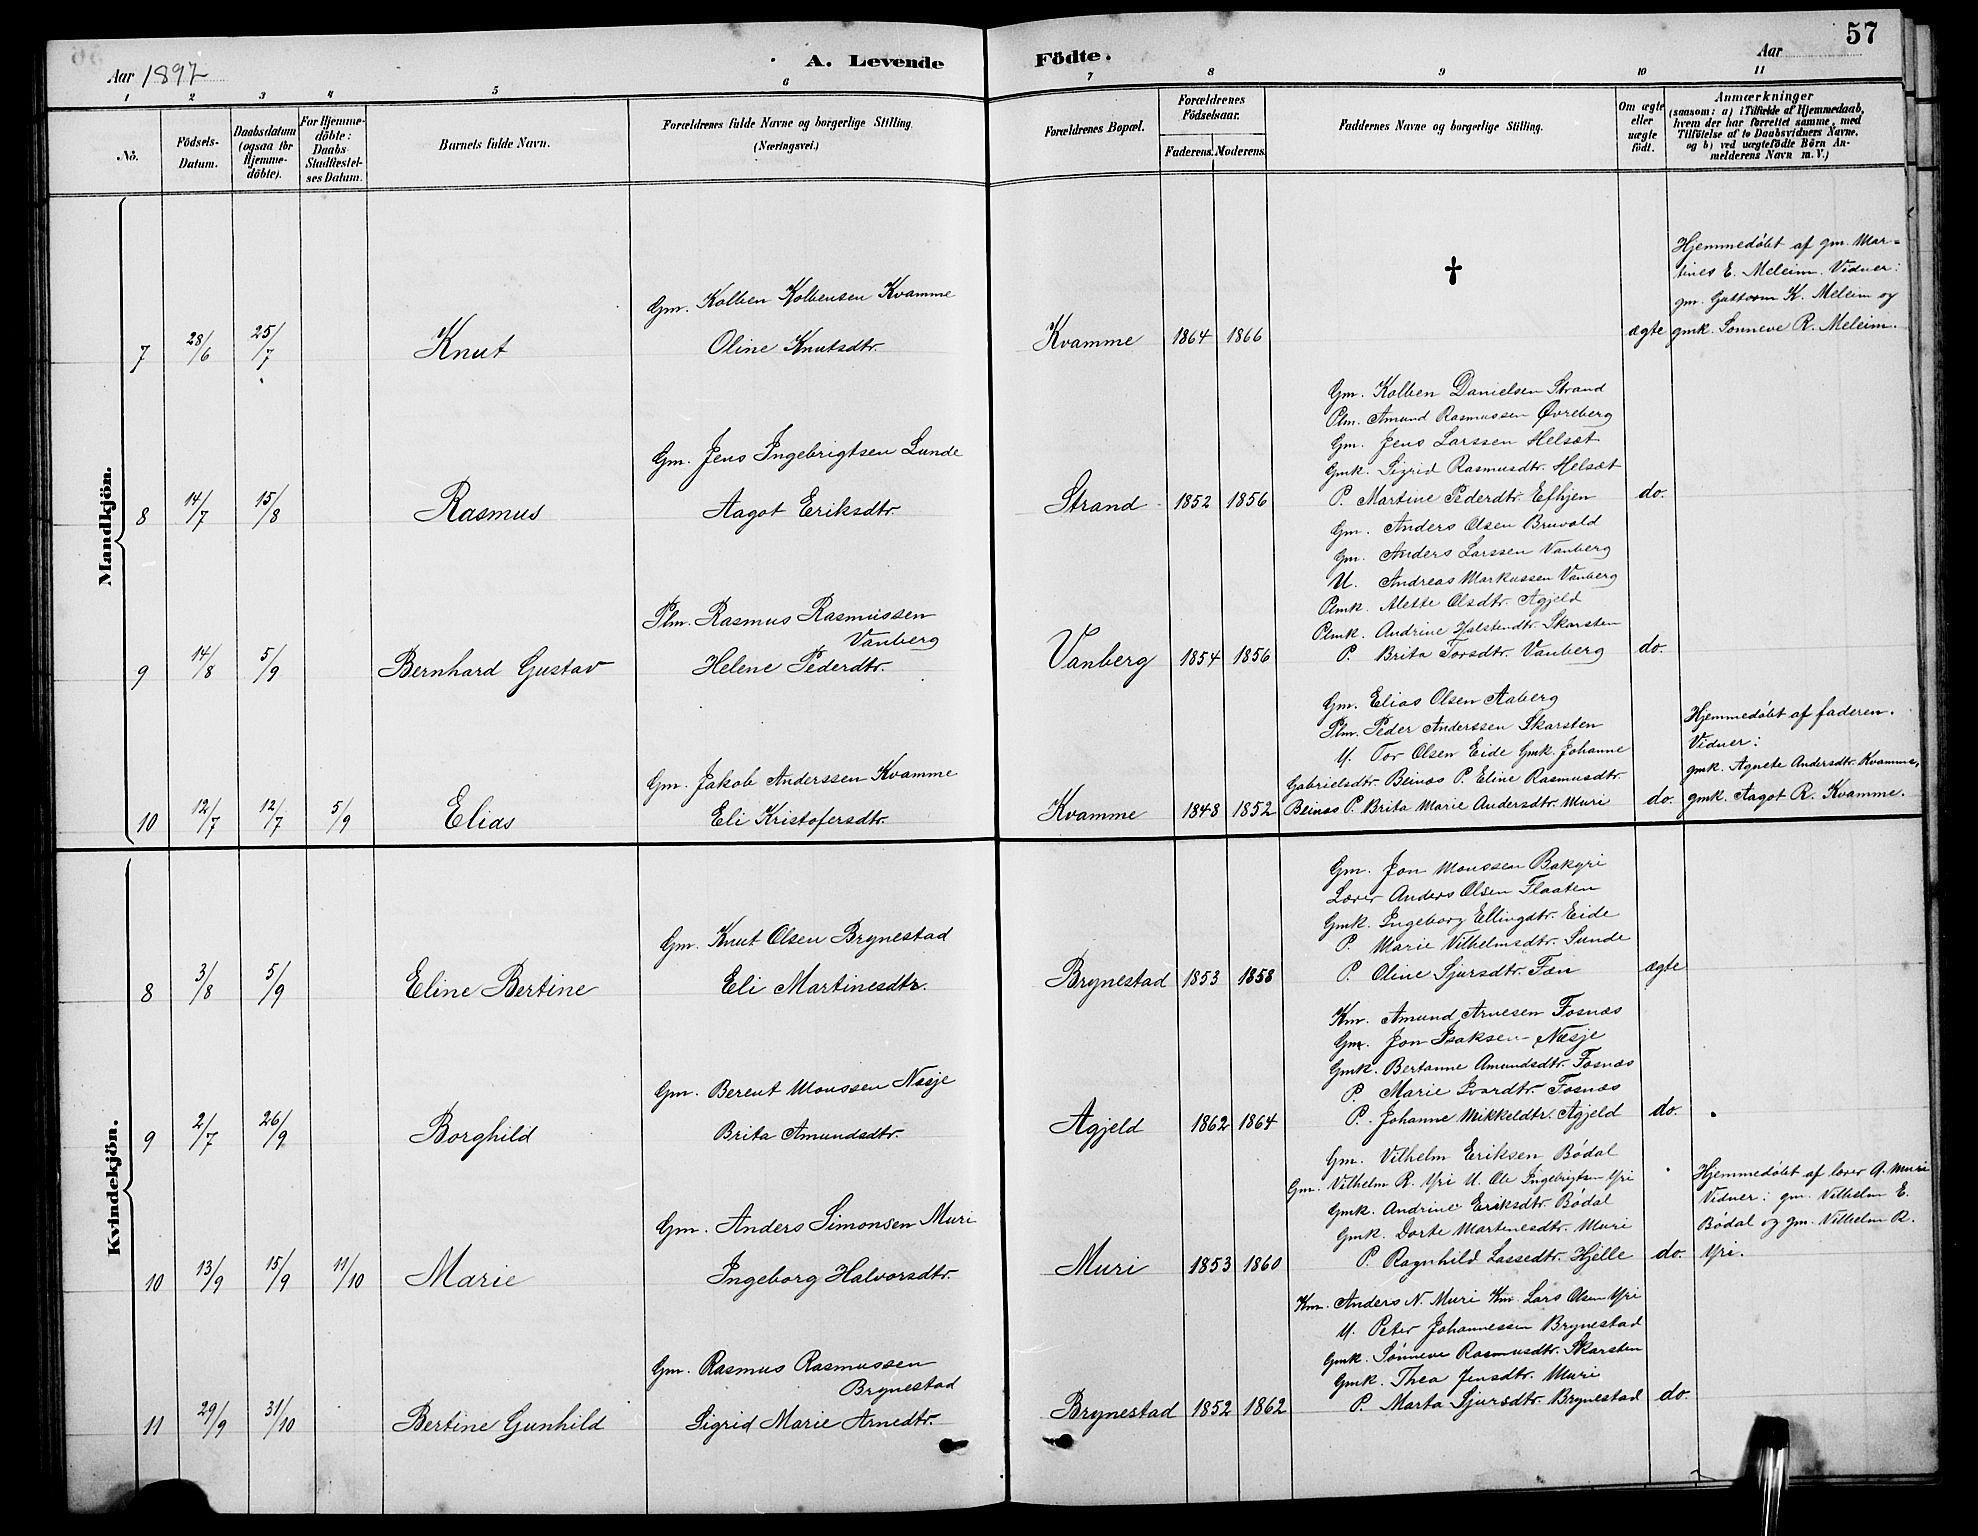 57
Aar 1892
A. Levende Födte.
Aar
1 2 3 4 5 6 7 8 9 10 11
Nö.
Födsels-Datum.
Daabsdatum (ogsaa for Hjemme-döbte).
For Hjemme-döbte: Daabs-Stadfæstel-ses Datum.
Barnets fulde Navn.
Forældrenes fulde Navne og borgerlige Stilling. (Næringsvei.)
Forældrenes Bopæl.
Forældrenes Födselsaar.
Faderens. Moderens.
Faddernes Navne og borgerlige Stilling.
Om ægte eller uægte födt.
Anmærkninger
(saasom: a) i Tilfælde af Hjemmedaab,
hvem der har forrettet samme, med
Tilföielse af to Daabsvidners Navne,
og b) ved uægtefödte Börn An-
melderens Navn m.V.)
Mandkjön.
7 28/6 25/7 Knut
Gm. Kolben Kolbensen Kvamme
Oline Knutsdtr.
Kvamme 1864 1866
†
ægte
Hjemmedøbt af gm. Mar-
tines E. Meleim. Vidner:
gm. Guttorm K. Meleim og
gmk. Sønneve R. Meleim.
8 14/7 15/8 Rasmus
Gm. Jens Ingebrigtsen Lunde
Aagot Eriksdtr.
Strand 1852 1856
Gm. Kolben Danielsen Strand
Plm. Amund Rasmussen Øvreberg
Gm. Jens Larssen Helset
Gmk. Sigrid Rasmusdtr. Helset
P. Martine Pederdtr. Efhjen
do.
9 14/8 5/9 Bernhard Gustav
Plm. Rasmus Rasmussen
Vanberg
Helene Pederdtr.
Vanberg 1854 1856
Gm. Anders Olsen Bruvold
Gm. Anders Larssen Vanberg
U. Andreas Markussen Vanberg
Plmk. Alette Olsdtr. Agjeld
Plmk. Andrine Halstendtr. Skarsten
P. Brita Torsdtr. Vanberg
do.
10 12/7 12/7 5/9 Elias
Gm. Jakob Anderssen Kvamme
Eli Kristofersdtr.
Kvamme 1848 1852
Gm. Elias Olsen Aaberg
Plm. Peder Anderssen Skarsten
U. Tor Olsen Eide Gmk. Johanne
Gabrielsdtr. Beinæs P. Eline Rasmusdtr.
Beinæs P. Brita Marie Andersdtr. Muri
do.
Hjemmedøbt af faderen.
Vidner:
gmk. Agnete Andersdtr. Kvamme,
gmk. Aagot R. Kvamme.
Kvindekjön.
8 3/8 5/9 Eline Bertine
Gm. Knut Olsen Brynestad
Eli Martinesdtr.
Brynestad 1853 1858
Gm. Jon Monssen Bakyri
Lærer Anders Olsen Flaaten
Gmk. Ingeborg Ellingdtr. Eide
P. Marie Vilhelmsdtr. Sunde
P. Oline Sjursdtr. Fæn
ægte
9 2/7 26/9 Borghild
Gm. Berent Monssen Næsje
Brita Amundsdtr.
Agjeld 1862 1864
Km. Amund Arnesen Fosnæs
Gm. Jon Isaksen Næsje
Gmk. Bertanne Amundsdtr. Fosnæs
P. Marie Ivardtr. Fosnæs
P. Johanne Mikkeldtr. Agjeld
do.
10 13/9 15/9 11/10 Marie
Gm. Anders Simonsen Muri
Ingeborg Halvorsdtr.
Muri 1853 1860
Gm. Vilhelm Eriksen Bødal
Gm. Vilhelm R. Yri U. Ole Ingebrigtsen Yri
Gmk. Andrine Eriksdtr. Bødal
Gmk. Dorte Martinesdtr. Muri
P. Ragnhild Lassedtr. Hjelle
do.
Hjemmedøbt af lærer A. Muri
Vidner: gm. Vilhelm E.
Bødal og gm. Vilhelm R.
Yri.
11 29/9 31/10 Bertine Gunhild
Gm. Rasmus Rasmussen
Brynestad
Sigrid Marie Arnedtr.
Brynestad 1852 1862
Km. Anders N. Muri Km. Lars Olsen Yri
U. Peter Johannessen Brynestad
Gmk. Sønneve Rasmusdtr. Skarsten
Gmk. Thea Jensdtr. Muri
P. Marta Sjursdtr. Brynestad
do.